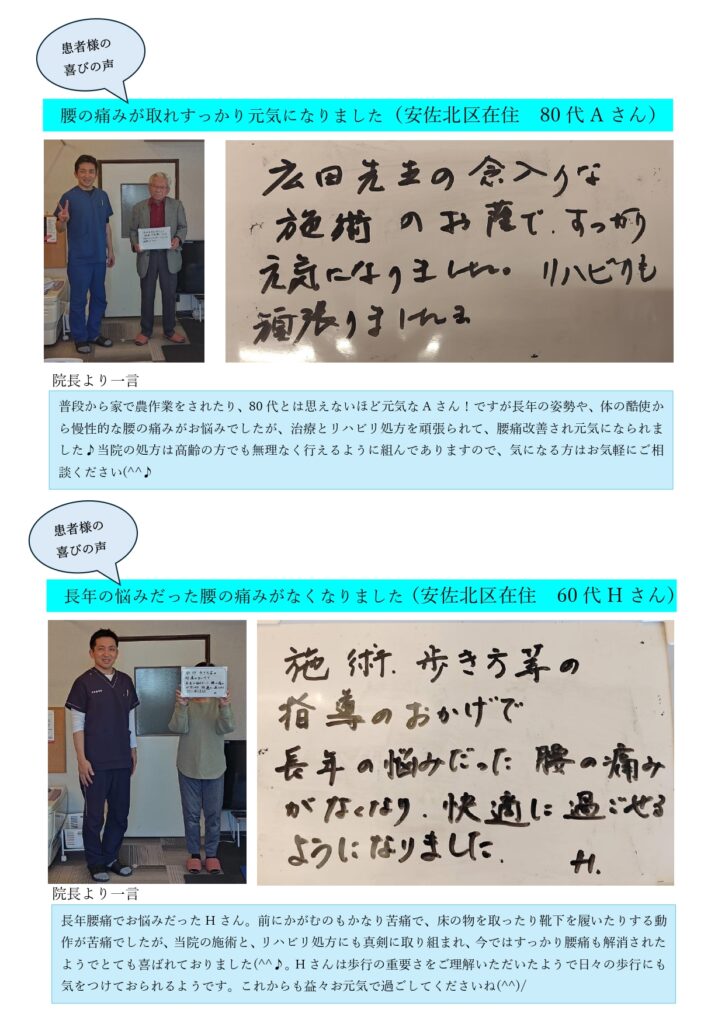 患者様の
喜びの声
腰の痛みが取れすっかり元気になりました（安佐北区在住　80代Aさん）
広田先生の念入りな
施術のお蔭で、すっかり
元気になりました。リハビリも
頑張りました
院長より一言
普段から家で農作業をされたり、80代とは思えないほど元気なAさん！ですが長年の姿勢や、体の酷使か
ら慢性的な腰の痛みがお悩みでしたが、治療とリハビリ処方を頑張られて、腰痛改善され元気になられま
した♪当院の処方は高齢の方でも無理なく行えるように組んでありますので、気になる方はお気軽にご相
談ください(^^♪
患者様の
喜びの声
長年の悩みだった腰の痛みがなくなりました（安佐北区在住　60代Hさん）
施術、歩き方等の
指導のおかげで
長年の悩みだった腰の痛み
がなくなり、快適に過ごせる
ようになりました。　H.
院長より一言
長年腰痛でお悩みだったHさん。前にかがむのもかなり苦痛で、床の物を取ったり靴下を履いたりする動
作が苦痛でしたが、当院の施術と、リハビリ処方にも真剣に取り組まれ、今ではすっかり腰痛も解消された
ようでとても喜ばれておりました(^^♪。Hさんは歩行の重要さをご理解いただいたようで日々の歩行にも
気をつけておられるようです。これからも益々お元気で過ごしてくださいね(^^)/